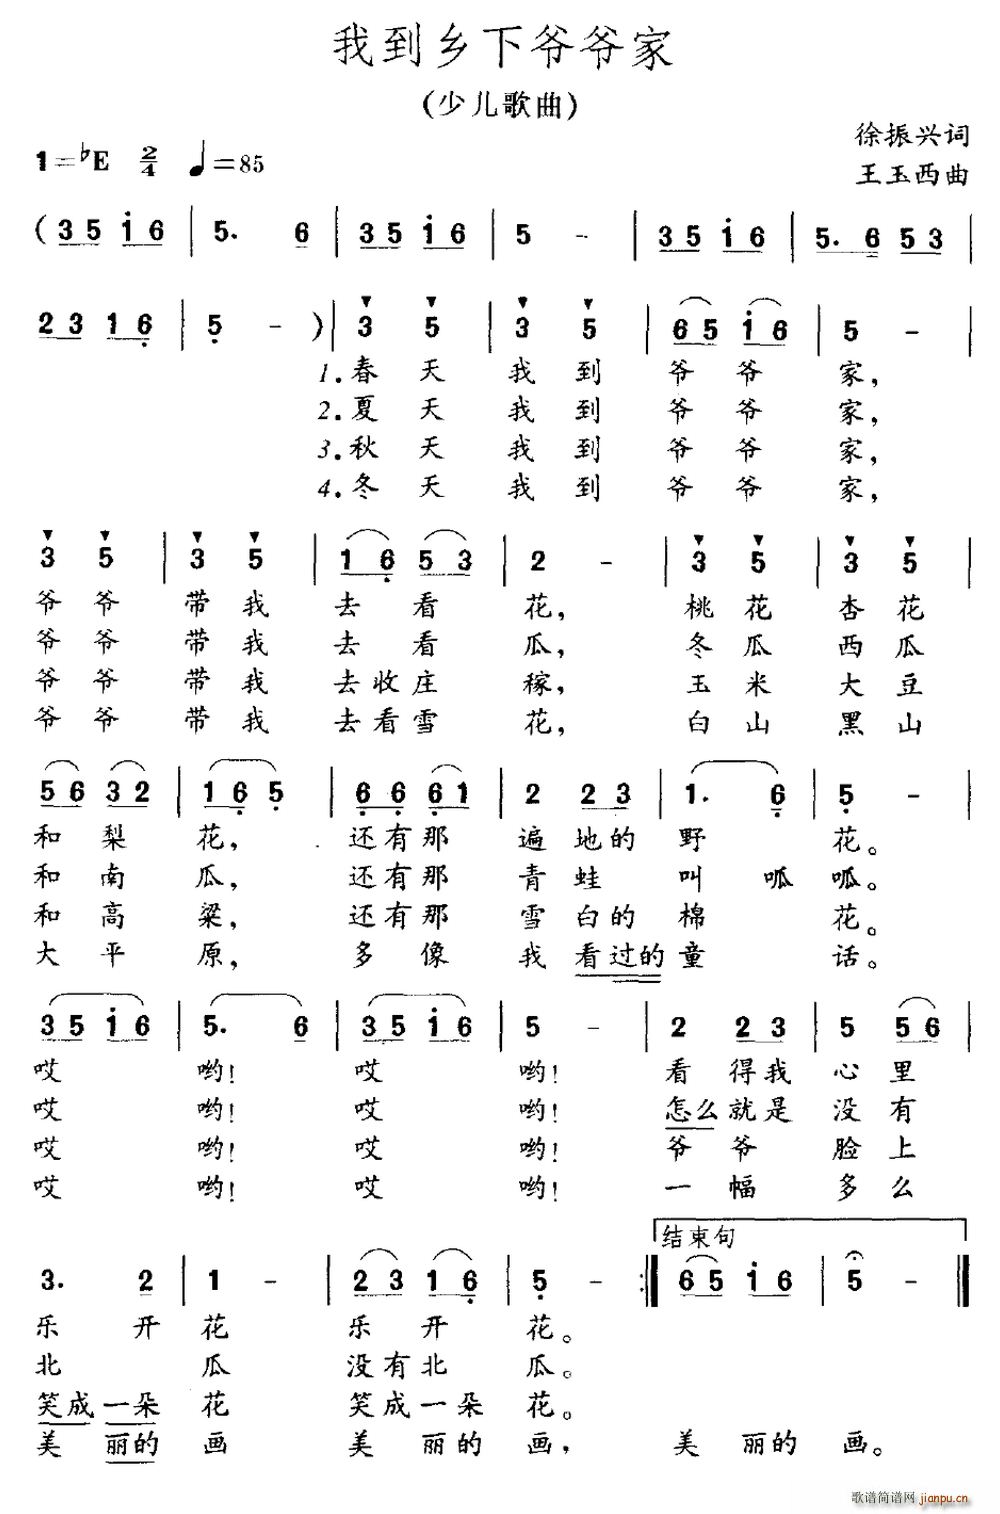 我到乡下爷爷家
(少儿歌曲)
徐振兴词
1=♭E 2/4 ♩=85
王玉西曲
(3 5 i 6 | 5. 6 | 3 5 i 6 | 5 - | 3 5 i 6 | 5. 6 5 3 |
2 3 1 6 | 5 - ) | 3 5 | 3 5 | 6 5 i 6 | 5 - |
1.春天 我到 爷爷 家,
2.夏天 我到 爷爷 家,
3.秋天 我到 爷爷 家,
4.冬天 我到 爷爷 家,
3 5 | 3 5 | 1 6 5 3 | 2 - | 3 5 | 3 5 |
爷爷 带我 去看 花, 桃花 杏花
爷爷 带我 去看 瓜, 冬瓜 西瓜
爷爷 带我 去收庄 稼, 玉米 大豆
爷爷 带我 去看雪 花, 白山 黑山
5 6 3 2 | 1 6 5 | 6 6 6 1 | 2 2 3 | 1. 6 | 5 - |
和梨 花, 还有那 遍地的 野 花。
和南 瓜, 还有那 青蛙 叫呱 呱。
和高 粱, 还有那 雪白的 棉 花。
大平 原, 多像 我看过的 童 话。
3 5 i 6 | 5. 6 | 3 5 i 6 | 5 - | 2 2 3 | 5 5 6 |
哎 哟! 哎 哟! 看得我 心里
哎 哟! 哎 哟! 怎么就是 没有
哎 哟! 哎 哟! 爷爷 脸上
哎 哟! 哎 哟! 一幅 多么
结束句
3. 2 | 1 - | 2 3 1 6 | 5 - :‖ 6 5 i 6 | 5 - ‖
乐开 花 乐开 花。
北 瓜 没有北 瓜。
笑成一朵 花 笑成一朵 花。
美丽的 画 美丽的 画, 美丽的 画。
歌谱简谱网 jianpu.cn